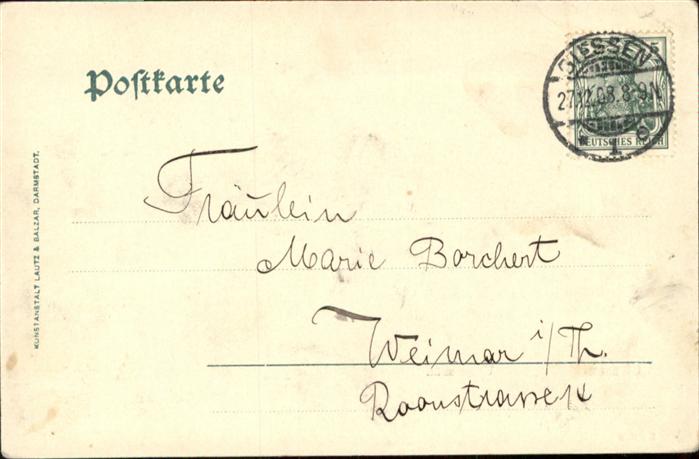 Postkarte
GIESSEN
27.12.08.8-9N.
* 1 e
DEUTSCHES REICH
KUNSTANSTALT LAUTZ & BALZAR, DARMSTADT.
Fräulein
Marie Borchert
Weimar i/Th.
Roonstrasse